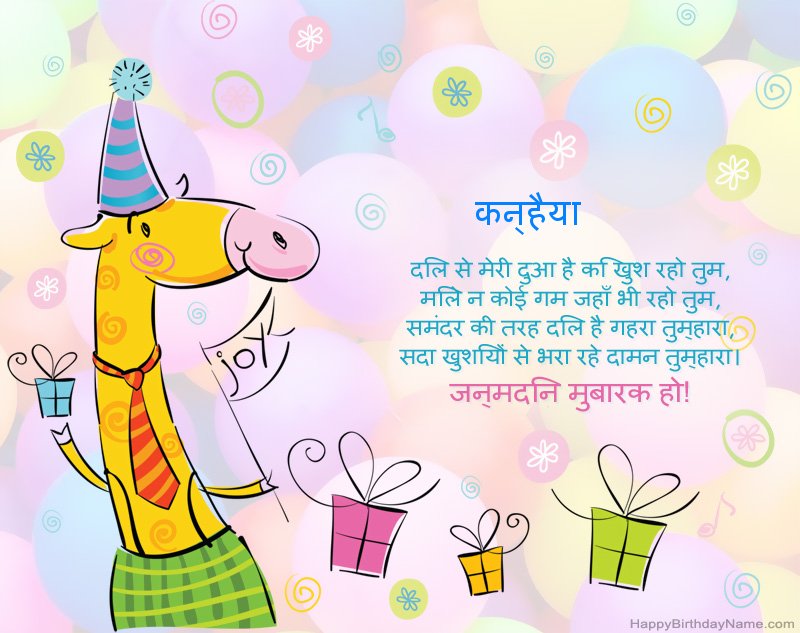 कन्हैया
दलि से मेरी दुआ है कि खुश रहो तुम,
मलिे न कोई गम जहाँ भी रहो तुम,
समंदर की तरह दलि है गहरा तुम्हारा,
सदा खुशयिों से भरा रहे दामन तुम्हारा।
जन्मदनि मुबारक हो!
joy
HappyBirthdayName.com